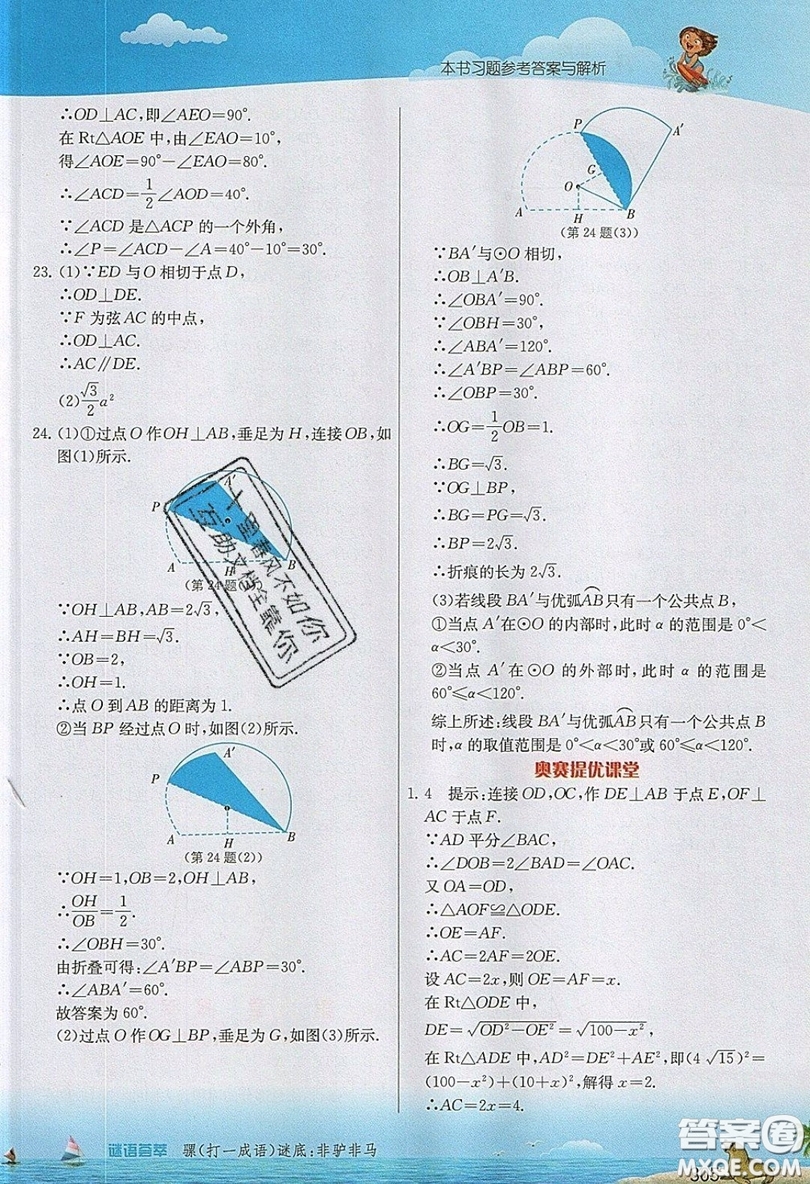 本书习题参考答案与解析
∴OD⊥AC,即∠AEO=90°.
在 Rt△AOE 中,由∠EAO=10°,
得∠AOE=90°-∠EAO=80°.
∴∠ACD=1/2∠AOD=40°.
∵∠ACD 是△ACP 的一个外角,
∴∠P=∠ACD-∠A=40°-10°=30°.
23. (1)∵ED 与O 相切于点 D,
∴OD⊥DE.
∵F 为弦 AC 的中点,
∴OD⊥AC.
∴AC∥DE.
(2)√3/2 a²
24. (1)①过点 O 作 OH⊥AB,垂足为 H,连接 OB,如
图(1)所示.
A′
P
A
H
B
十里春风不如你
互助文档全靠你
∵OH⊥AB,AB=2√3,
∴AH=BH=√3.
∵OB=2,
∴OH=1.
∴点 O 到 AB 的距离为 1.
②当 BP 经过点 O 时,如图(2)所示.
A′
P
O
A
H
B
(第 24 题(2))
∵OH=1,OB=2,OH⊥AB,
∴OH/OB=1/2.
∴∠OBH=30°.
由折叠可得:∠A′BP=∠ABP=30°.
∴∠ABA′=60°.
故答案为 60°.
(2)过点 O 作 OG⊥BP,垂足为 G,如图(3)所示.
P
A′
G
O
A
H
B
(第 24 题(3))
∵BA′与⊙O 相切,
∴OB⊥A′B.
∴∠OBA′=90°.
∵∠OBH=30°,
∴∠ABA′=120°.
∴∠A′BP=∠ABP=60°.
∴∠OBP=30°.
∴OG=1/2OB=1.
∴BG=√3.
∵OG⊥BP,
∴BG=PG=√3.
∴BP=2√3.
∴折痕的长为 2√3.
(3)若线段 BA′与优弧AB只有一个公共点 B,
①当点 A′在⊙O 的内部时,此时 α 的范围是 0°<
α<30°.
②当点 A′在⊙O 的外部时,此时 α 的范围是
60°≤α<120°.
综上所述:线段 BA′与优弧AB只有一个公共点 B
时,α 的取值范围是 0°<α<30°或 60°≤α<120°.
奥赛提优课堂
1. 4 提示:连接 OD,OC,作 DE⊥AB 于点 E,OF⊥
AC 于点 F.
∵AD 平分∠BAC,
∴∠DOB=2∠BAD=∠OAC.
又 OA=OD,
∴△AOF≌△ODE.
∴OE=AF.
∴AC=2AF=2OE.
设 AC=2x,则 OE=AF=x.
在 Rt△ODE 中,
DE=√(OD²-OE²)=√(100-x²),
在 Rt△ADE 中,AD²=DE²+AE²,即(4√15)²=
(100-x²)+(10+x)²,解得 x=2.
∴AC=2x=4.
谜语荟萃 骡(打一成语)谜底:非驴非马
答案圈
MXQE.COM